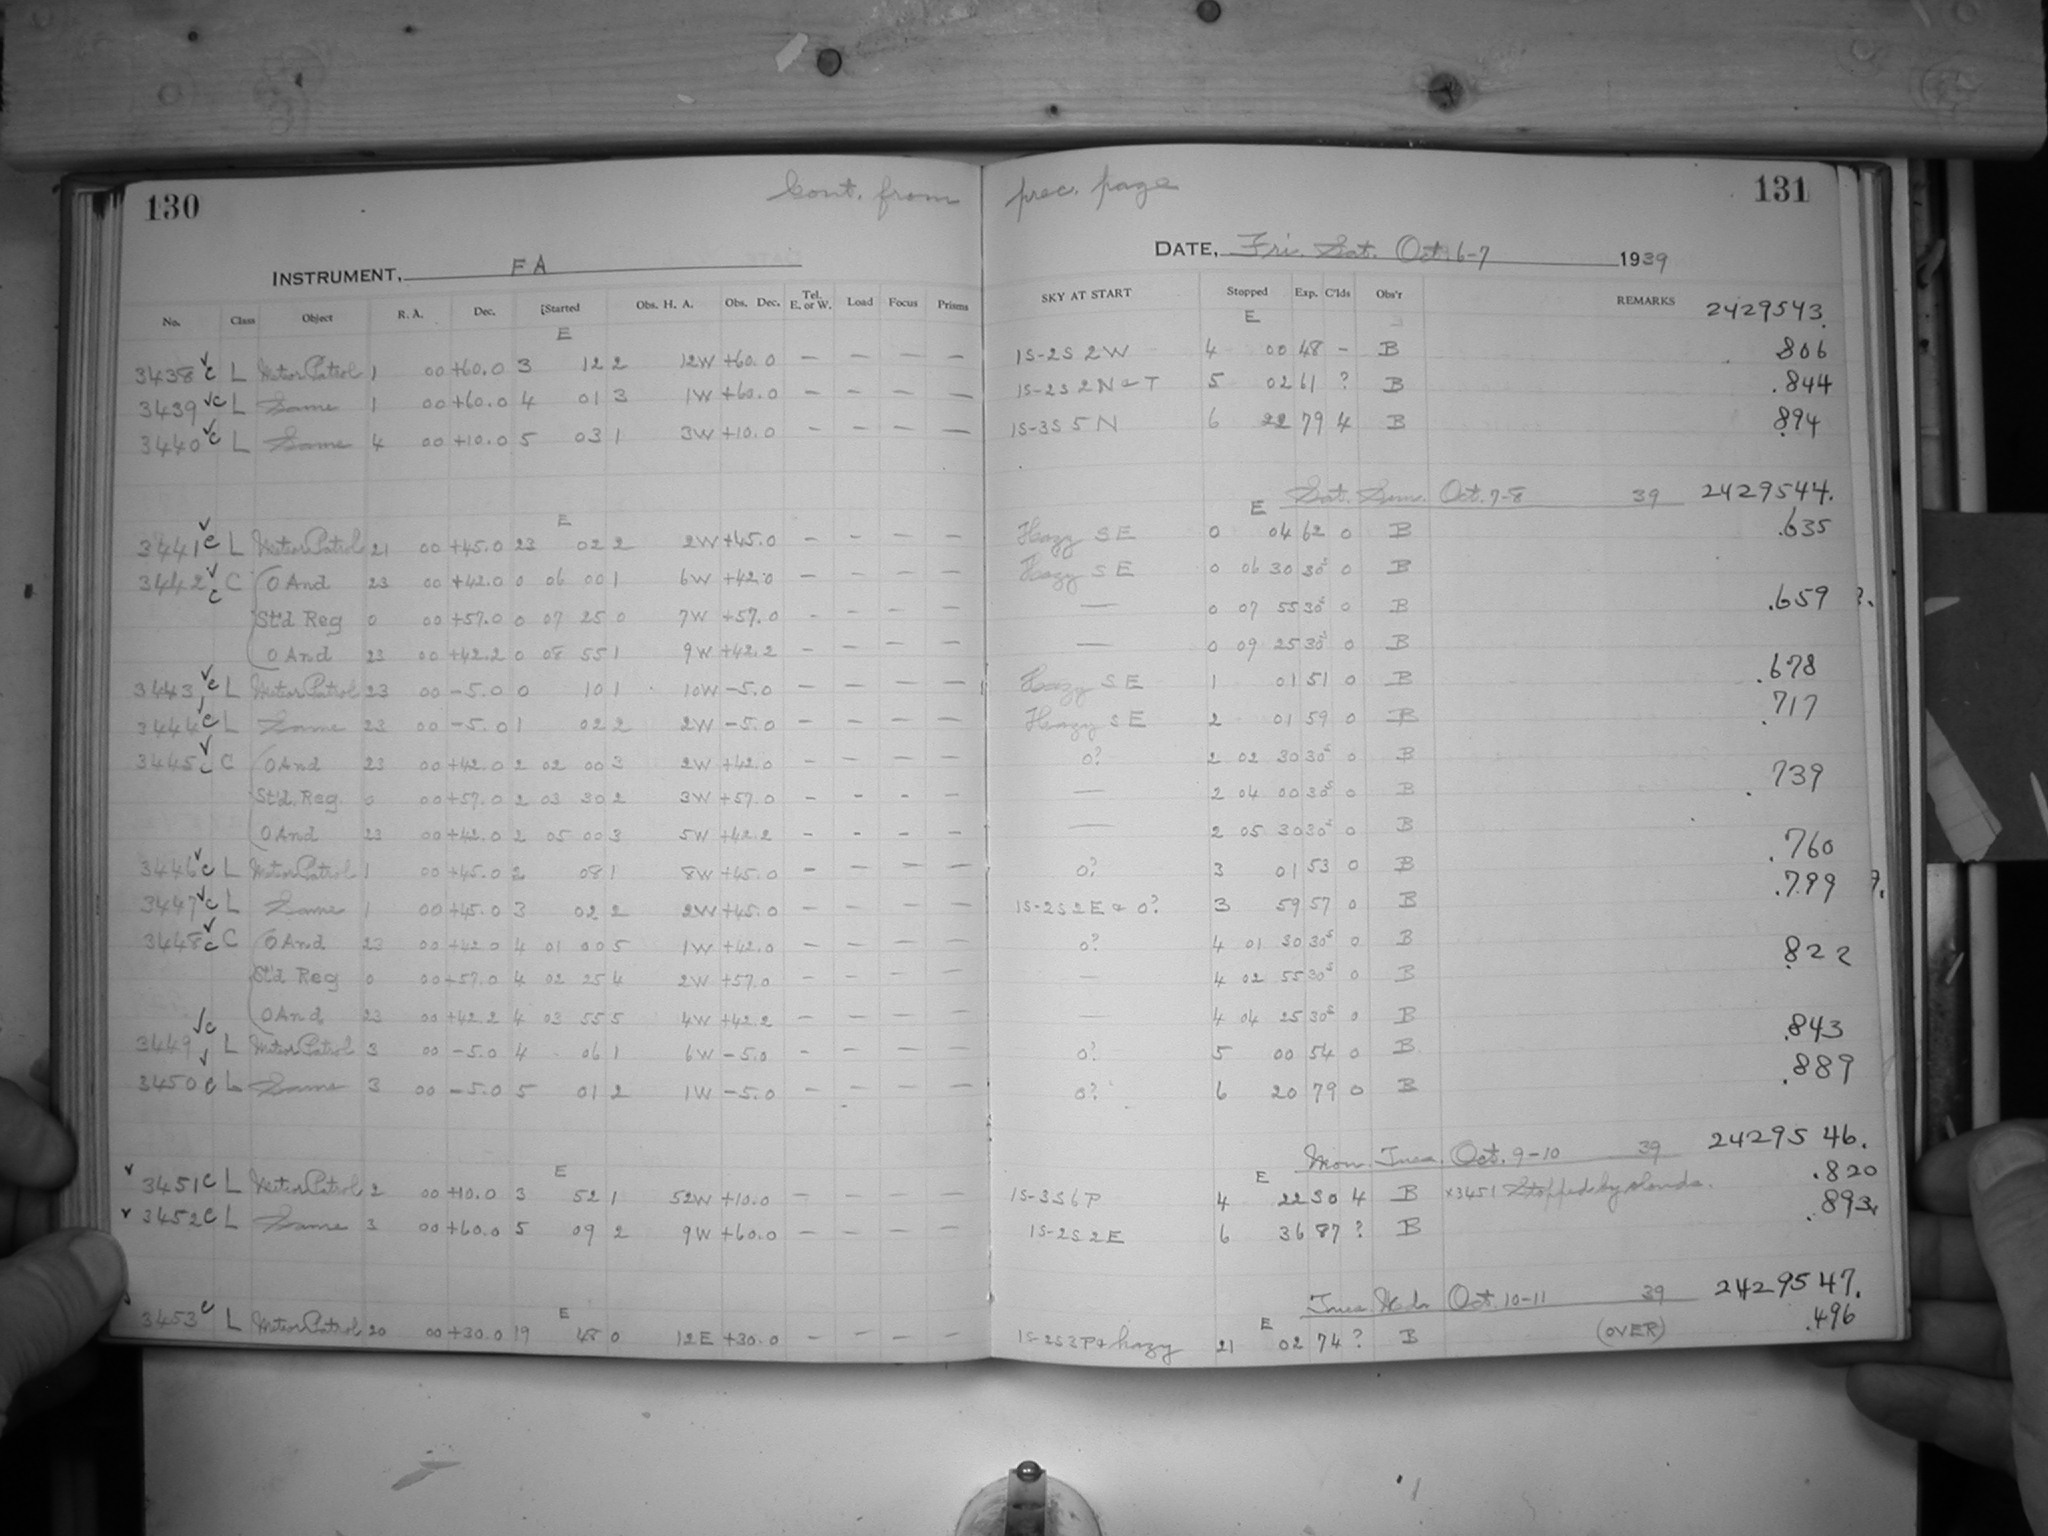 130 Cont. from prec. page 131
INSTRUMENT, FA DATE, Fri. Sat. Oct. 6-7 1939
No. Class Object R. A. Dec. Started Obs. H. A. Obs. Dec. Tel. E. or W. Load Focus Prisms SKY AT START Stopped Exp. C'lds Obs'r REMARKS 2429543.
E E
3438 √c L Meteor Patrol 1 00 +60.0 3 12 2 12W +60.0 — — — — 1S-2S 2W 4 00 48 - B .806
3439 √c L Same 1 00 +60.0 4 01 3 1W +60.0 — — — — 1S-2S 2N & T 5 02 61 ? B .844
3440 √c L Same 4 00 +10.0 5 03 1 3W +10.0 — — — — 1S-3S 5N 6 22 79 4 B .894
Sat. Sun. Oct. 7-8 39 2429544.
E E
3441 √c L Meteor Patrol 21 00 +45.0 23 02 2 2W +45.0 — — — — Hazy SE 0 04 62 0 B .635
3442 √c C O And 23 00 +42.0 0 06 00 1 6W +42.0 — — — — Hazy SE 0 06 30 30s 0 B
St'd Reg 0 00 +57.0 0 07 25 0 7W +57.0 - — — — — 0 07 55 30s 0 B .659 ?.
O And 23 00 +42.2 0 08 55 1 9W +42.2 — — — — — 0 09 25 30s 0 B
3443 √c L Meteor Patrol 23 00 -5.0 0 10 1 10W -5.0 — — — — Hazy SE 1 01 51 0 B .678
3444 √c L Same 23 00 -5.0 1 02 2 2W -5.0 — — — — Hazy SE 2 01 59 0 B .717
3445 √c C O And 23 00 +42.0 2 02 00 3 2W +42.0 — — — — 0? 2 02 30 30s 0 B
St'd. Reg. 0 00 +57.0 2 03 30 2 3W +57.0 - - - — — 2 04 00 30s 0 B .739
O And 23 00 +42.0 2 05 00 3 5W +42.2 - - - — — 2 05 30 30s 0 B
3446 √c L Meteor Patrol 1 00 +45.0 2 08 1 8W +45.0 — — — — 0? 3 01 53 0 B .760
3447 √c L Same 1 00 +45.0 3 02 2 2W +45.0 — — — — 1S-2S 2E & 0? 3 59 57 0 B .799 ?.
3448 √c C O And 23 00 +42.0 4 01 00 5 1W +42.0 — — — — 0? 4 01 30 30s 0 B
St'd Reg 0 00 +57.0 4 02 25 4 2W +57.0 — — — — — 4 02 55 30s 0 B .822
O And 23 00 +42.2 4 03 55 5 4W +42.2 — — — — — 4 04 25 30s 0 B
3449 √c L Meteor Patrol 3 00 -5.0 4 06 1 6W -5.0 — — — — 0? 5 00 54 0 B .843
3450 √c L Same 3 00 -5.0 5 01 2 1W -5.0 — — — — 0? 6 20 79 0 B .889
Mon. Tues. Oct. 9-10 39 2429546.
E E
√ 3451 c L Meteor Patrol 2 00 +10.0 3 52 1 52W +10.0 — — — — 1S-3S 6P 4 22 30 4 B x3451 Stopped by clouds. .820
√ 3452 c L Same 3 00 +60.0 5 09 2 9W +60.0 — — — — 1S-2S 2E 6 36 87 ? B .893
Tues. Wed. Oct. 10-11 39 2429547.
E E
√ 3453 c L Meteor Patrol 20 00 +30.0 19 48 0 12E +30.0 — — — — 1S-2S 3P & hazy 21 02 74 ? B (OVER) .496